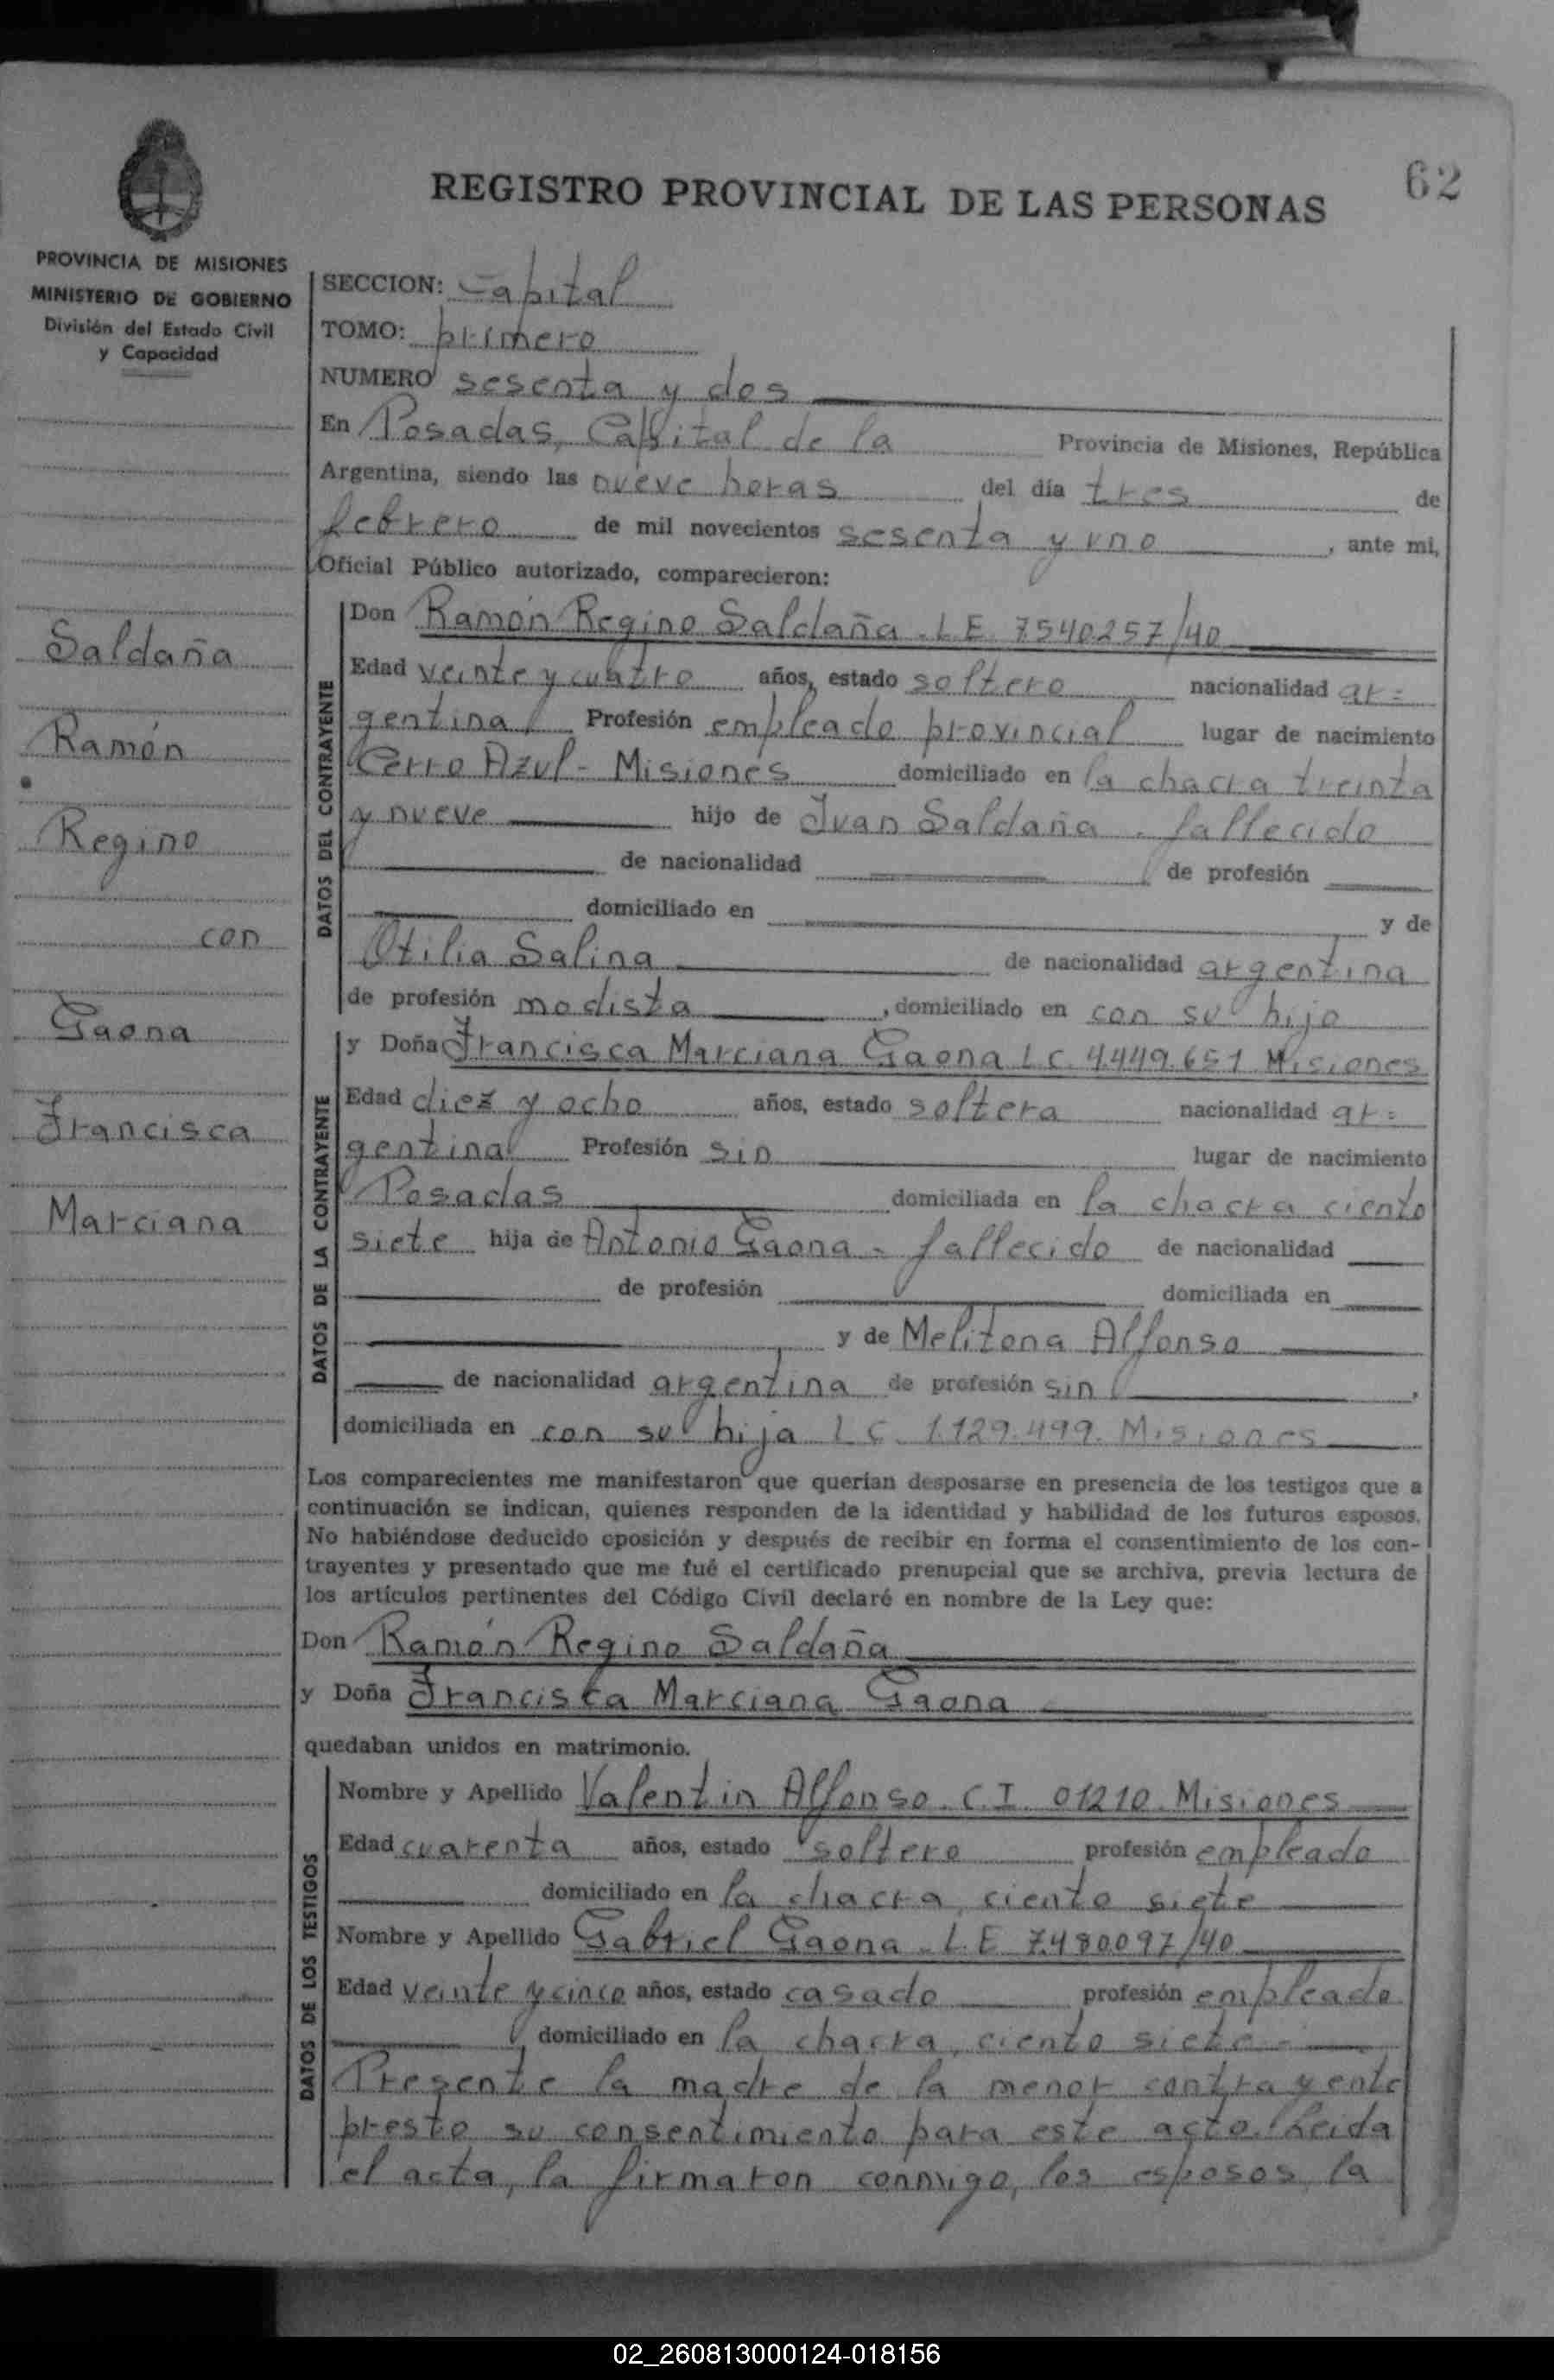 62
REGISTRO PROVINCIAL DE LAS PERSONAS
PROVINCIA DE MISIONES
MINISTERIO DE GOBIERNO
División del Estado Civil
y Capacidad
Saldaña
Ramón
Regino
con
Gaona
Francisca
Marciana
SECCION: Capital
TOMO: primero
NUMERO sesenta y dos
En Posadas, Capital de la Provincia de Misiones, República
Argentina, siendo las nueve horas del día tres de
febrero de mil novecientos sesenta y uno, ante mi,
Oficial Público autorizado, comparecieron:
DATOS DEL CONTRAYENTE
Don Ramón Regino Saldaña. L.E. 7540257/40
Edad veinte y cuatro años, estado soltero nacionalidad ar=
gentina Profesión empleado provincial lugar de nacimiento
Cerro Azul - Misiones domiciliado en la chacra treinta
y nueve hijo de Juan Saldaña. fallecido
de nacionalidad de profesión
domiciliado en y de
Otilia Salina de nacionalidad argentina
de profesión modista, domiciliado en con su hijo
DATOS DE LA CONTRAYENTE
y Doña Francisca Marciana Gaona L.C. 4.449.651 Misiones
Edad diez y ocho años, estado soltera nacionalidad ar=
gentina Profesión sin lugar de nacimiento
Posadas domiciliada en la chacra ciento
siete hija de Antonio Gaona - fallecido de nacionalidad
de profesión domiciliada en
y de Melitona Alfonso
de nacionalidad argentina de profesión sin,
domiciliada en con su hija L.C. 1.129.499. Misiones
Los comparecientes me manifestaron que querían desposarse en presencia de los testigos que a
continuación se indican, quienes responden de la identidad y habilidad de los futuros esposos.
No habiéndose deducido oposición y después de recibir en forma el consentimiento de los con-
trayentes y presentado que me fué el certificado prenupcial que se archiva, previa lectura de
los artículos pertinentes del Código Civil declaré en nombre de la Ley que:
Don Ramón Regino Saldaña
y Doña Francisca Marciana Gaona
quedaban unidos en matrimonio.
DATOS DE LOS TESTIGOS
Nombre y Apellido Valentin Alfonso. C.I. 01210. Misiones
Edad cuarenta años, estado soltero profesión empleado
domiciliado en la chacra, ciento siete
Nombre y Apellido Gabriel Gaona - L.E. 7.480097/40
Edad veinte y cinco años, estado casado profesión empleado
domiciliado en la chacra, ciento siete.-
Presente la madre de la menor contrayente
prestó su consentimiento para este acto. Leida
el acta, la firmaron conmigo, los esposos, la
02_260813000124-018156